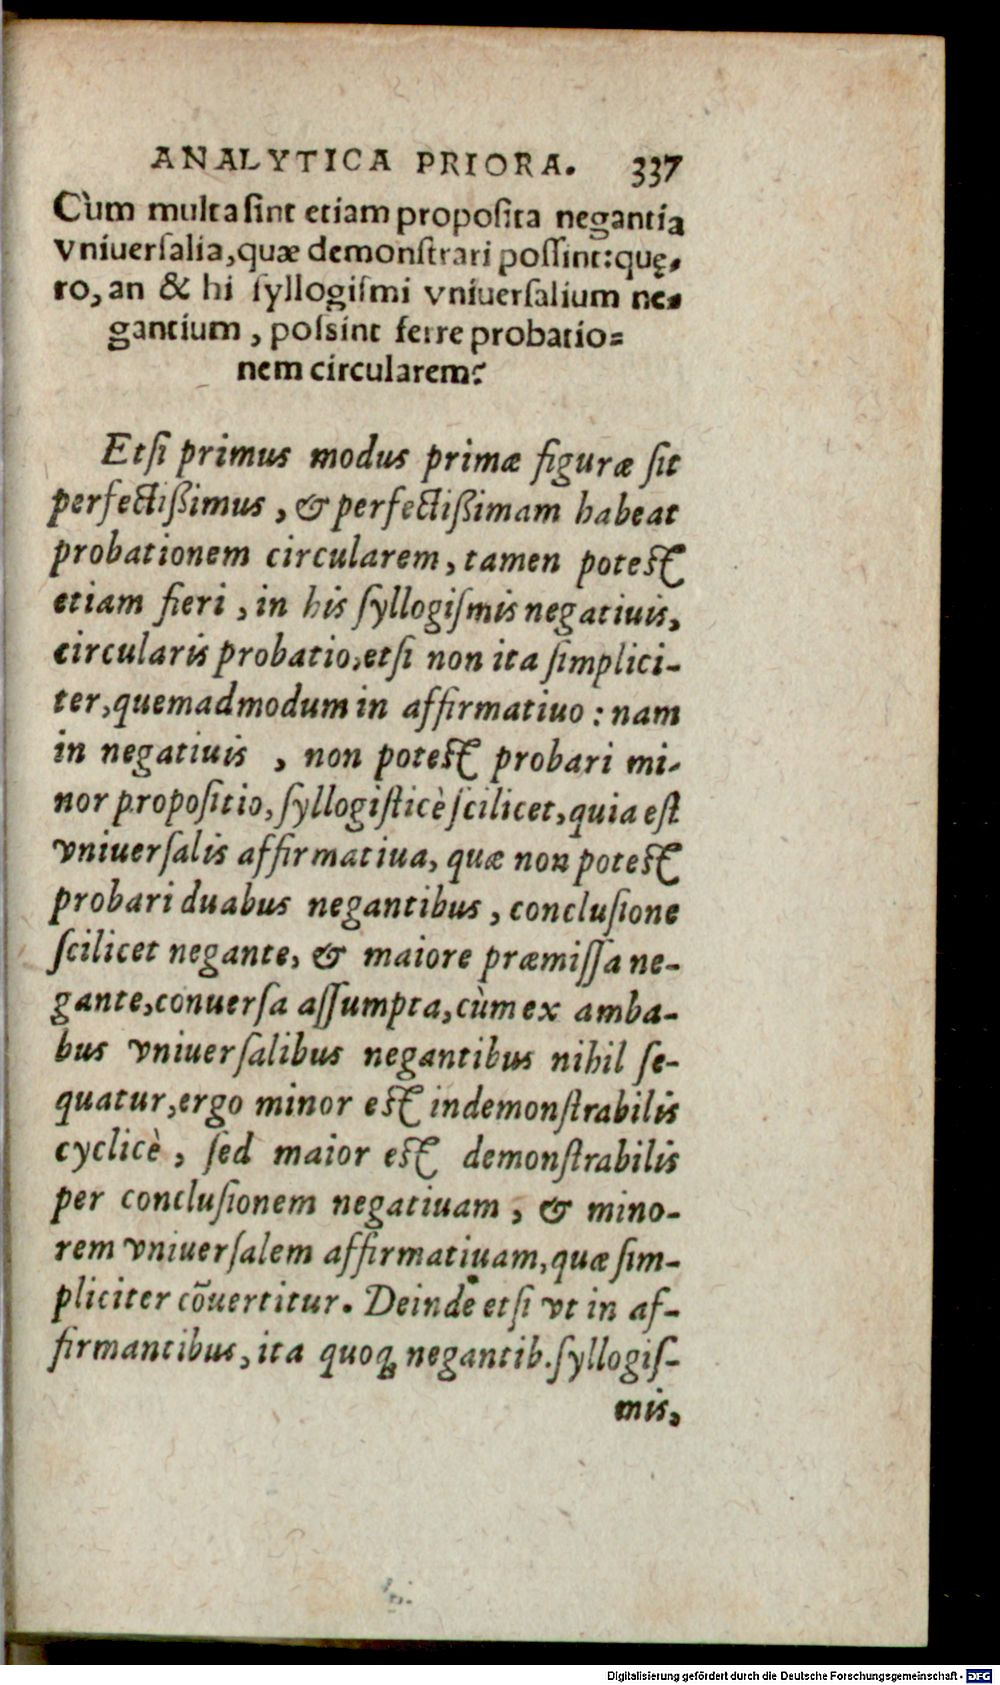 ANALYTICA PRIORA. 337
Cùm multa sint etiam proposita negantia
vniuersalia, quæ demonstrari possint: quę-
ro, an & hi syllogismi vniuersalium ne-
gantium, possint ferre probatio-
nem circularem?
Etsi primus modus primæ figuræ sit
perfectißimus, & perfectißimam habeat
probationem circularem, tamen potest
etiam fieri, in his syllogismis negatiuis,
circularis probatio, etsi non ita simplici-
ter, quemadmodum in affirmatiuo: nam
in negatiuis, non potest probari mi-
nor propositio, syllogisticè scilicet, quia est
vniuersalis affirmatiua, quæ non potest
probari duabus negantibus, conclusione
scilicet negante, & maiore præmissa ne-
gante, conuersa assumpta, cùm ex amba-
bus vniuersalibus negantibus nihil se-
quatur, ergo minor est indemonstrabilis
cyclicè, sed maior est demonstrabilis
per conclusionem negatiuam, & mino-
rem vniuersalem affirmatiuam, quæ sim-
pliciter cõuertitur. Deinde etsi vt in af-
firmantibus, ita quoq; negantib. syllogis-
mis,
Digitalisierung gefördert durch die Deutsche Forschungsgemeinschaft - DFG